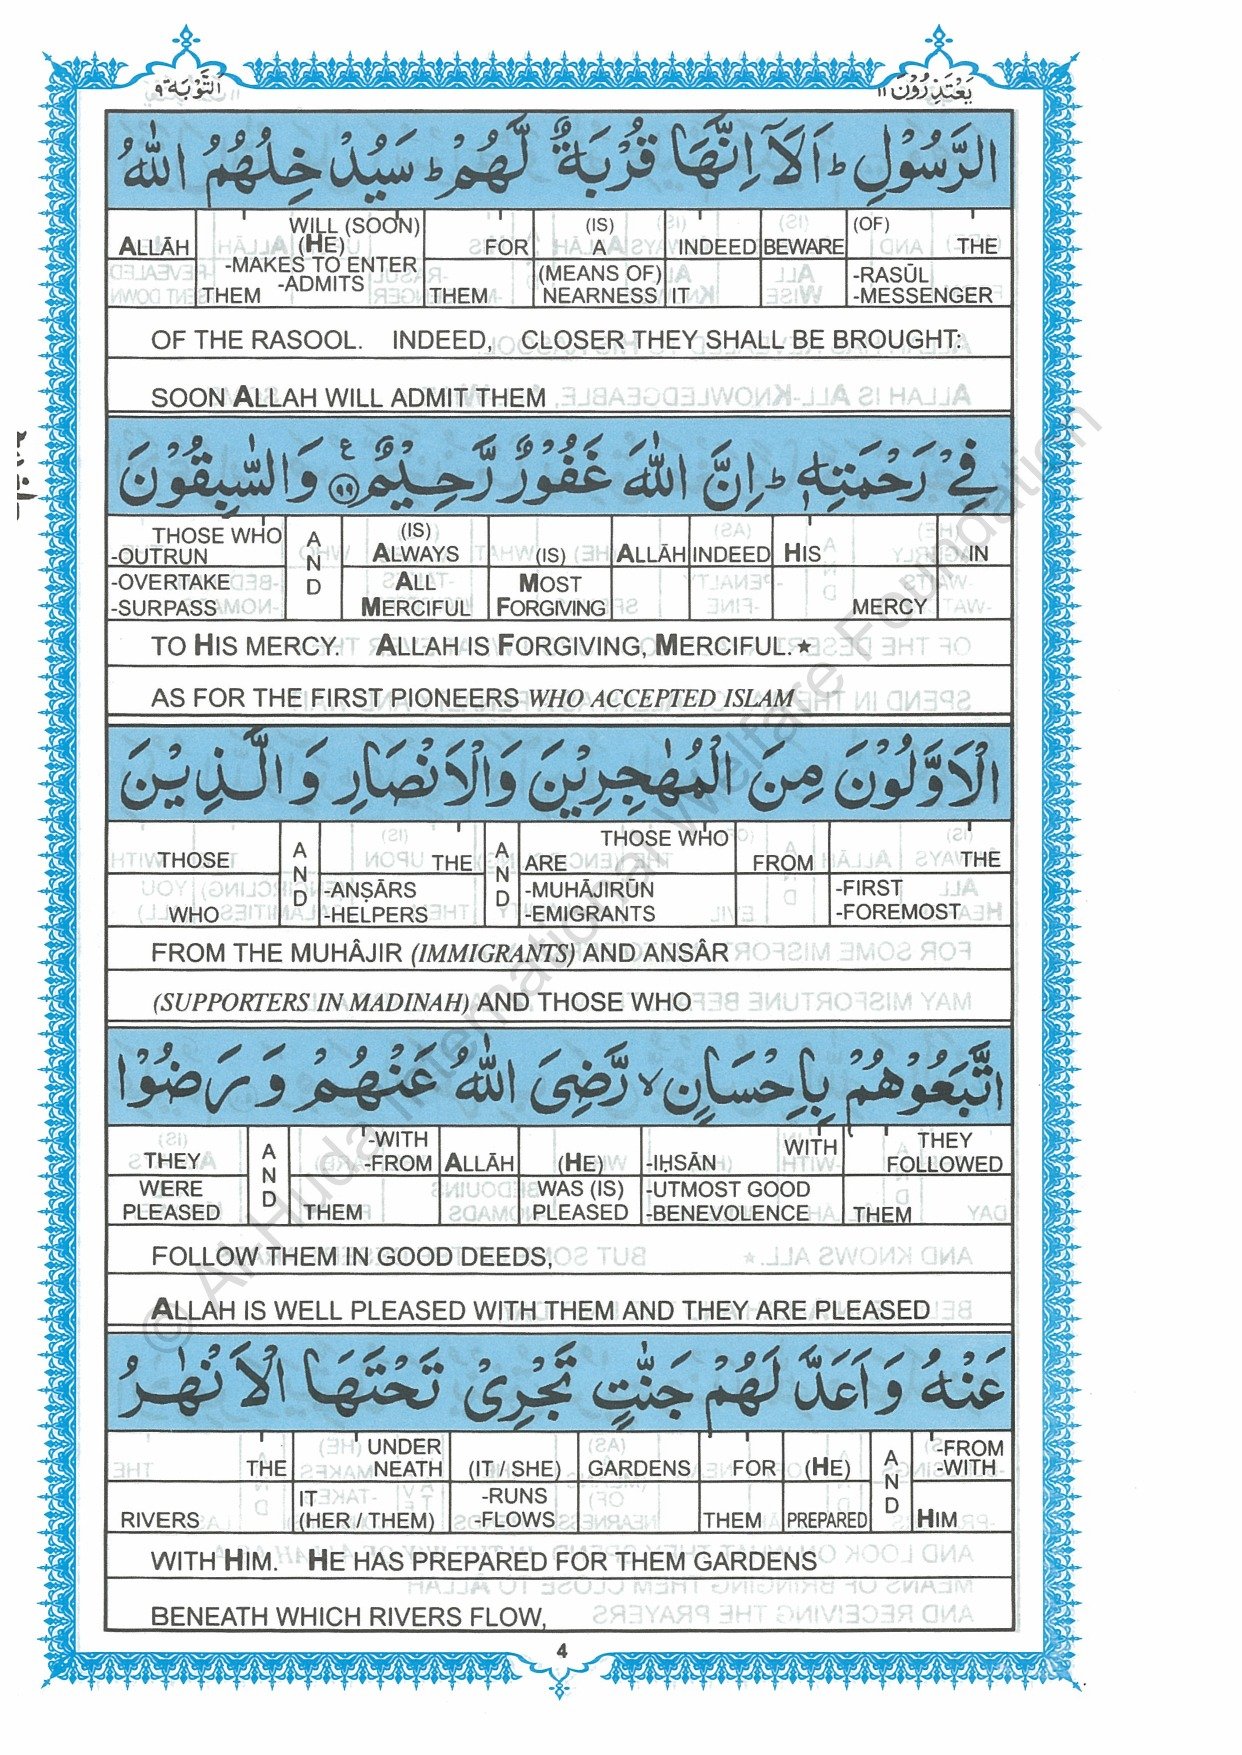 التَّوْبَة ٩
يَعْتَذِرُوْنَ ١١
الرَّسُوْلِ ؕ اَلَاۤ اِنَّهَا قُرْبَةٌ لَّهُمْ ؕ سَيُدْخِلُهُمُ اللّٰهُ
ALLĀH WILL (SOON) (HE) -MAKES TO ENTER -ADMITS THEM FOR THEM (IS) A (MEANS OF) NEARNESS INDEED IT BEWARE (OF) THE -RASŪL -MESSENGER
OF THE RASOOL. INDEED, CLOSER THEY SHALL BE BROUGHT:
SOON ALLAH WILL ADMIT THEM
فِيْ رَحْمَتِهٖ ؕ اِنَّ اللّٰهَ غَفُوْرٌ رَّحِيْمٌ ۹۹ ع وَالسّٰبِقُوْنَ
THOSE WHO -OUTRUN -OVERTAKE -SURPASS AND (IS) ALWAYS ALL MERCIFUL (IS) MOST FORGIVING ALLĀH INDEED HIS MERCY IN
TO HIS MERCY. ALLAH IS FORGIVING, MERCIFUL.★
AS FOR THE FIRST PIONEERS WHO ACCEPTED ISLAM
الْاَوَّلُوْنَ مِنَ الْمُهٰجِرِيْنَ وَالْاَنْصَارِ وَالَّذِيْنَ
THOSE WHO AND THE -ANṢĀRS -HELPERS AND THOSE WHO ARE -MUHĀJIRŪN -EMIGRANTS FROM THE -FIRST -FOREMOST
FROM THE MUHÂJIR (IMMIGRANTS) AND ANSÂR
(SUPPORTERS IN MADINAH) AND THOSE WHO
اتَّبَعُوْهُمْ بِاِحْسَانٍ ۙ رَّضِىَ اللّٰهُ عَنْهُمْ وَرَضُوْا
THEY WERE PLEASED AND -WITH -FROM THEM ALLĀH (HE) WAS (IS) PLEASED WITH -IḤSĀN -UTMOST GOOD -BENEVOLENCE THEY FOLLOWED THEM
FOLLOW THEM IN GOOD DEEDS,
ALLAH IS WELL PLEASED WITH THEM AND THEY ARE PLEASED
عَنْهُ وَاَعَدَّ لَهُمْ جَنّٰتٍ تَجْرِىْ تَحْتَهَا الْاَنْهٰرُ
THE RIVERS UNDER NEATH IT (HER / THEM) (IT / SHE) -RUNS -FLOWS GARDENS FOR THEM (HE) PREPARED AND -FROM -WITH HIM
WITH HIM. HE HAS PREPARED FOR THEM GARDENS
BENEATH WHICH RIVERS FLOW,
4
© Al-Huda International Welfare Foundation